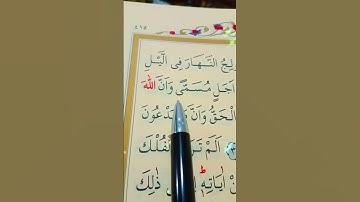 ٤١٥
لِجُ النَّهَارَ فِى الَّيْلِ
اَجَلٍ مُسَمًّى وَاَنَّ اللّٰهَ
الْحَقُّ وَاَنَّ مَا يَدْعُونَ
اَلَمْ تَرَ الْفُلْكَ
اٰيَاتِهٖ ذٰلِكَ